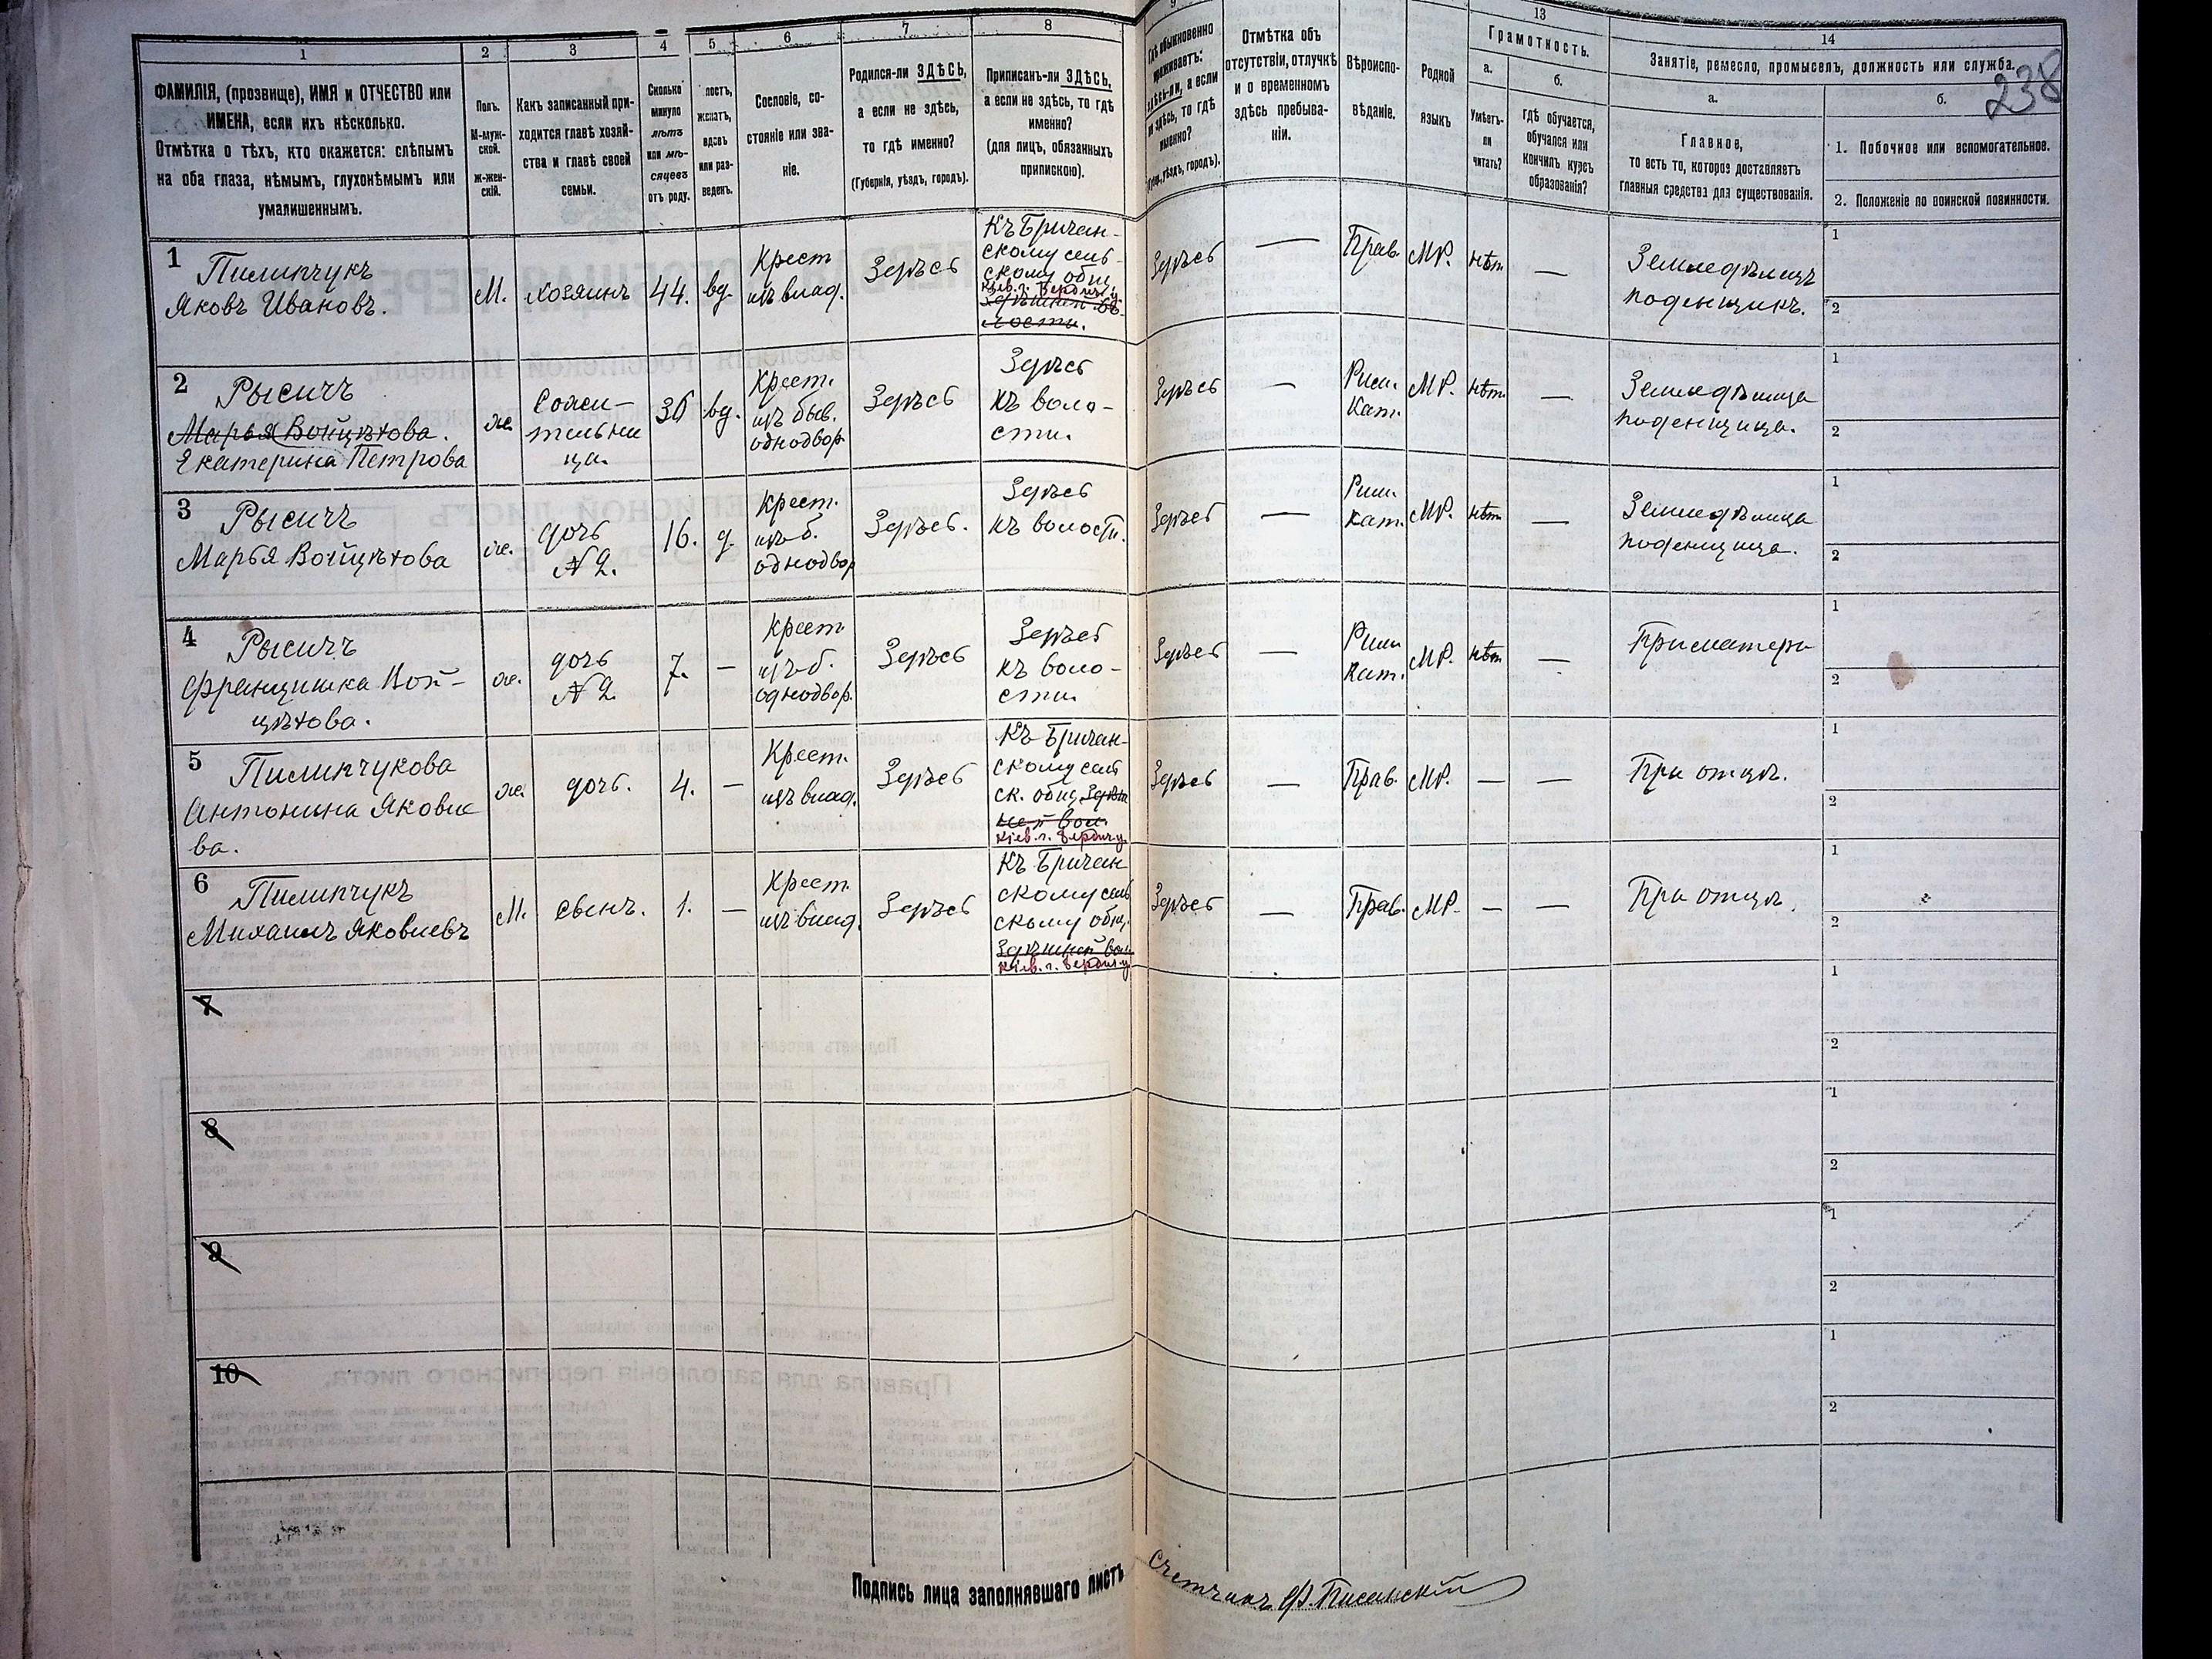 1
2
3
4
5
6
7
8
9
13
14
238
ФАМИЛІЯ, (прозвище), ИМЯ и ОТЧЕСТВО или
ИМЕНА, если ихъ нѣсколько.
Отмѣтка о тѣхъ, кто окажется: слѣпымъ
на оба глаза, нѣмымъ, глухонѣмымъ или
умалишеннымъ.
Полъ.
М-муж-
ской.
ж-жен-
скій.
Какъ записанный при-
ходится главѣ хозяй-
ства и главѣ своей
семьи.
Сколько
минуло
лѣтъ
или мѣ-
сяцевъ
отъ роду.
лостъ,
женатъ,
вдовъ
или раз-
веденъ.
Сословіе, со-
стояніе или зва-
ніе.
Родился-ли ЗДѢСЬ,
а если не здѣсь,
то гдѣ именно?
(Губернія, уѣздъ, городъ).
Приписанъ-ли ЗДѢСЬ,
а если не здѣсь, то гдѣ
именно?
(для лицъ, обязанныхъ
припискою).
Гдѣ обыкновенно
проживаетъ:
здѣсь-ли, а если
не здѣсь, то гдѣ
именно?
уѣздъ, городъ).
Отмѣтка объ
отсутствіи, отлучкѣ
и о временномъ
здѣсь пребыва-
ніи.
Вѣроиспо-
вѣданіе.
Родной
языкъ
Грамотность.
а.
Умѣетъ-
ли
читать?
б.
гдѣ обучается,
обучался или
кончилъ курсъ
образованія?
Занятіе, ремесло, промыселъ, должность или служба.
а.
Главное,
то есть то, которое доставляетъ
главныя средства для существованія.
б.
1. Побочное или вспомогательное.
2. Положеніе по воинской повинности.
1
Пилипчукъ
Яковъ Ивановъ.
М.
хозяинъ
44.
вд.
Крест
изъ влад.
Здѣсь
Къ Бричан-
скому сель-
скому общ.
Кіев. г. Бердич. у.
Здѣсь
—
Прав.
МР.
нѣт
—
Земледѣлецъ
поденщикъ.
1
2
2
Рысичъ
Марья Войцѣхова.
Екатерина Петрова
ж.
Сожи-
тельни
ца.
36
вд.
Крест.
изъ быв.
однодвор.
Здѣсь
Здѣсь
къ воло-
сти.
Здѣсь
—
Рим.
Кат.
МР.
нѣт
—
Земледѣлица
поденщица.
1
2
3
Рысичъ
Марья Войцѣхова
ж.
дочь
№ 2.
16.
д.
Крест.
изъ б.
однодвор
Здѣсь.
Здѣсь
къ волости.
Здѣсь
—
Рим.
кат.
МР.
нѣт
—
Земледѣлица
поденщица.
1
2
4
Рысичъ
Францишка Вой-
цѣхова.
ж.
дочь
№ 2.
7.
—
Крест
изъ б.
однодвор.
Здѣсь
Здѣсь
къ воло-
сти.
Здѣсь
—
Рим
Кат.
МР.
нѣт
—
При матери
1
2
5
Пилипчукова
Антонина Яковле
ва.
ж.
дочь.
4.
—
Крест.
изъ влад.
Здѣсь
Къ Бричан-
скому сель
ск. общ.
Кіев. г. Бердич. у.
Здѣсь
—
Прав.
МР.
—
—
При отцѣ.
1
2
6
Пилипчукъ
Михаилъ Яковлевъ
М.
сынъ.
1.
—
Крест.
изъ влад.
Здѣсь
Къ Бричан
скому сель
скому общ.
Здѣшней вол.
Кіев. г. Бердич. у.
Здѣсь
—
Прав.
МР.
—
—
При отцѣ.
1
2
7
1
2
8
1
2
9
1
2
10
1
2
Подпись лица заполнявшаго листъ
Счетчикъ Ф. Писанскій